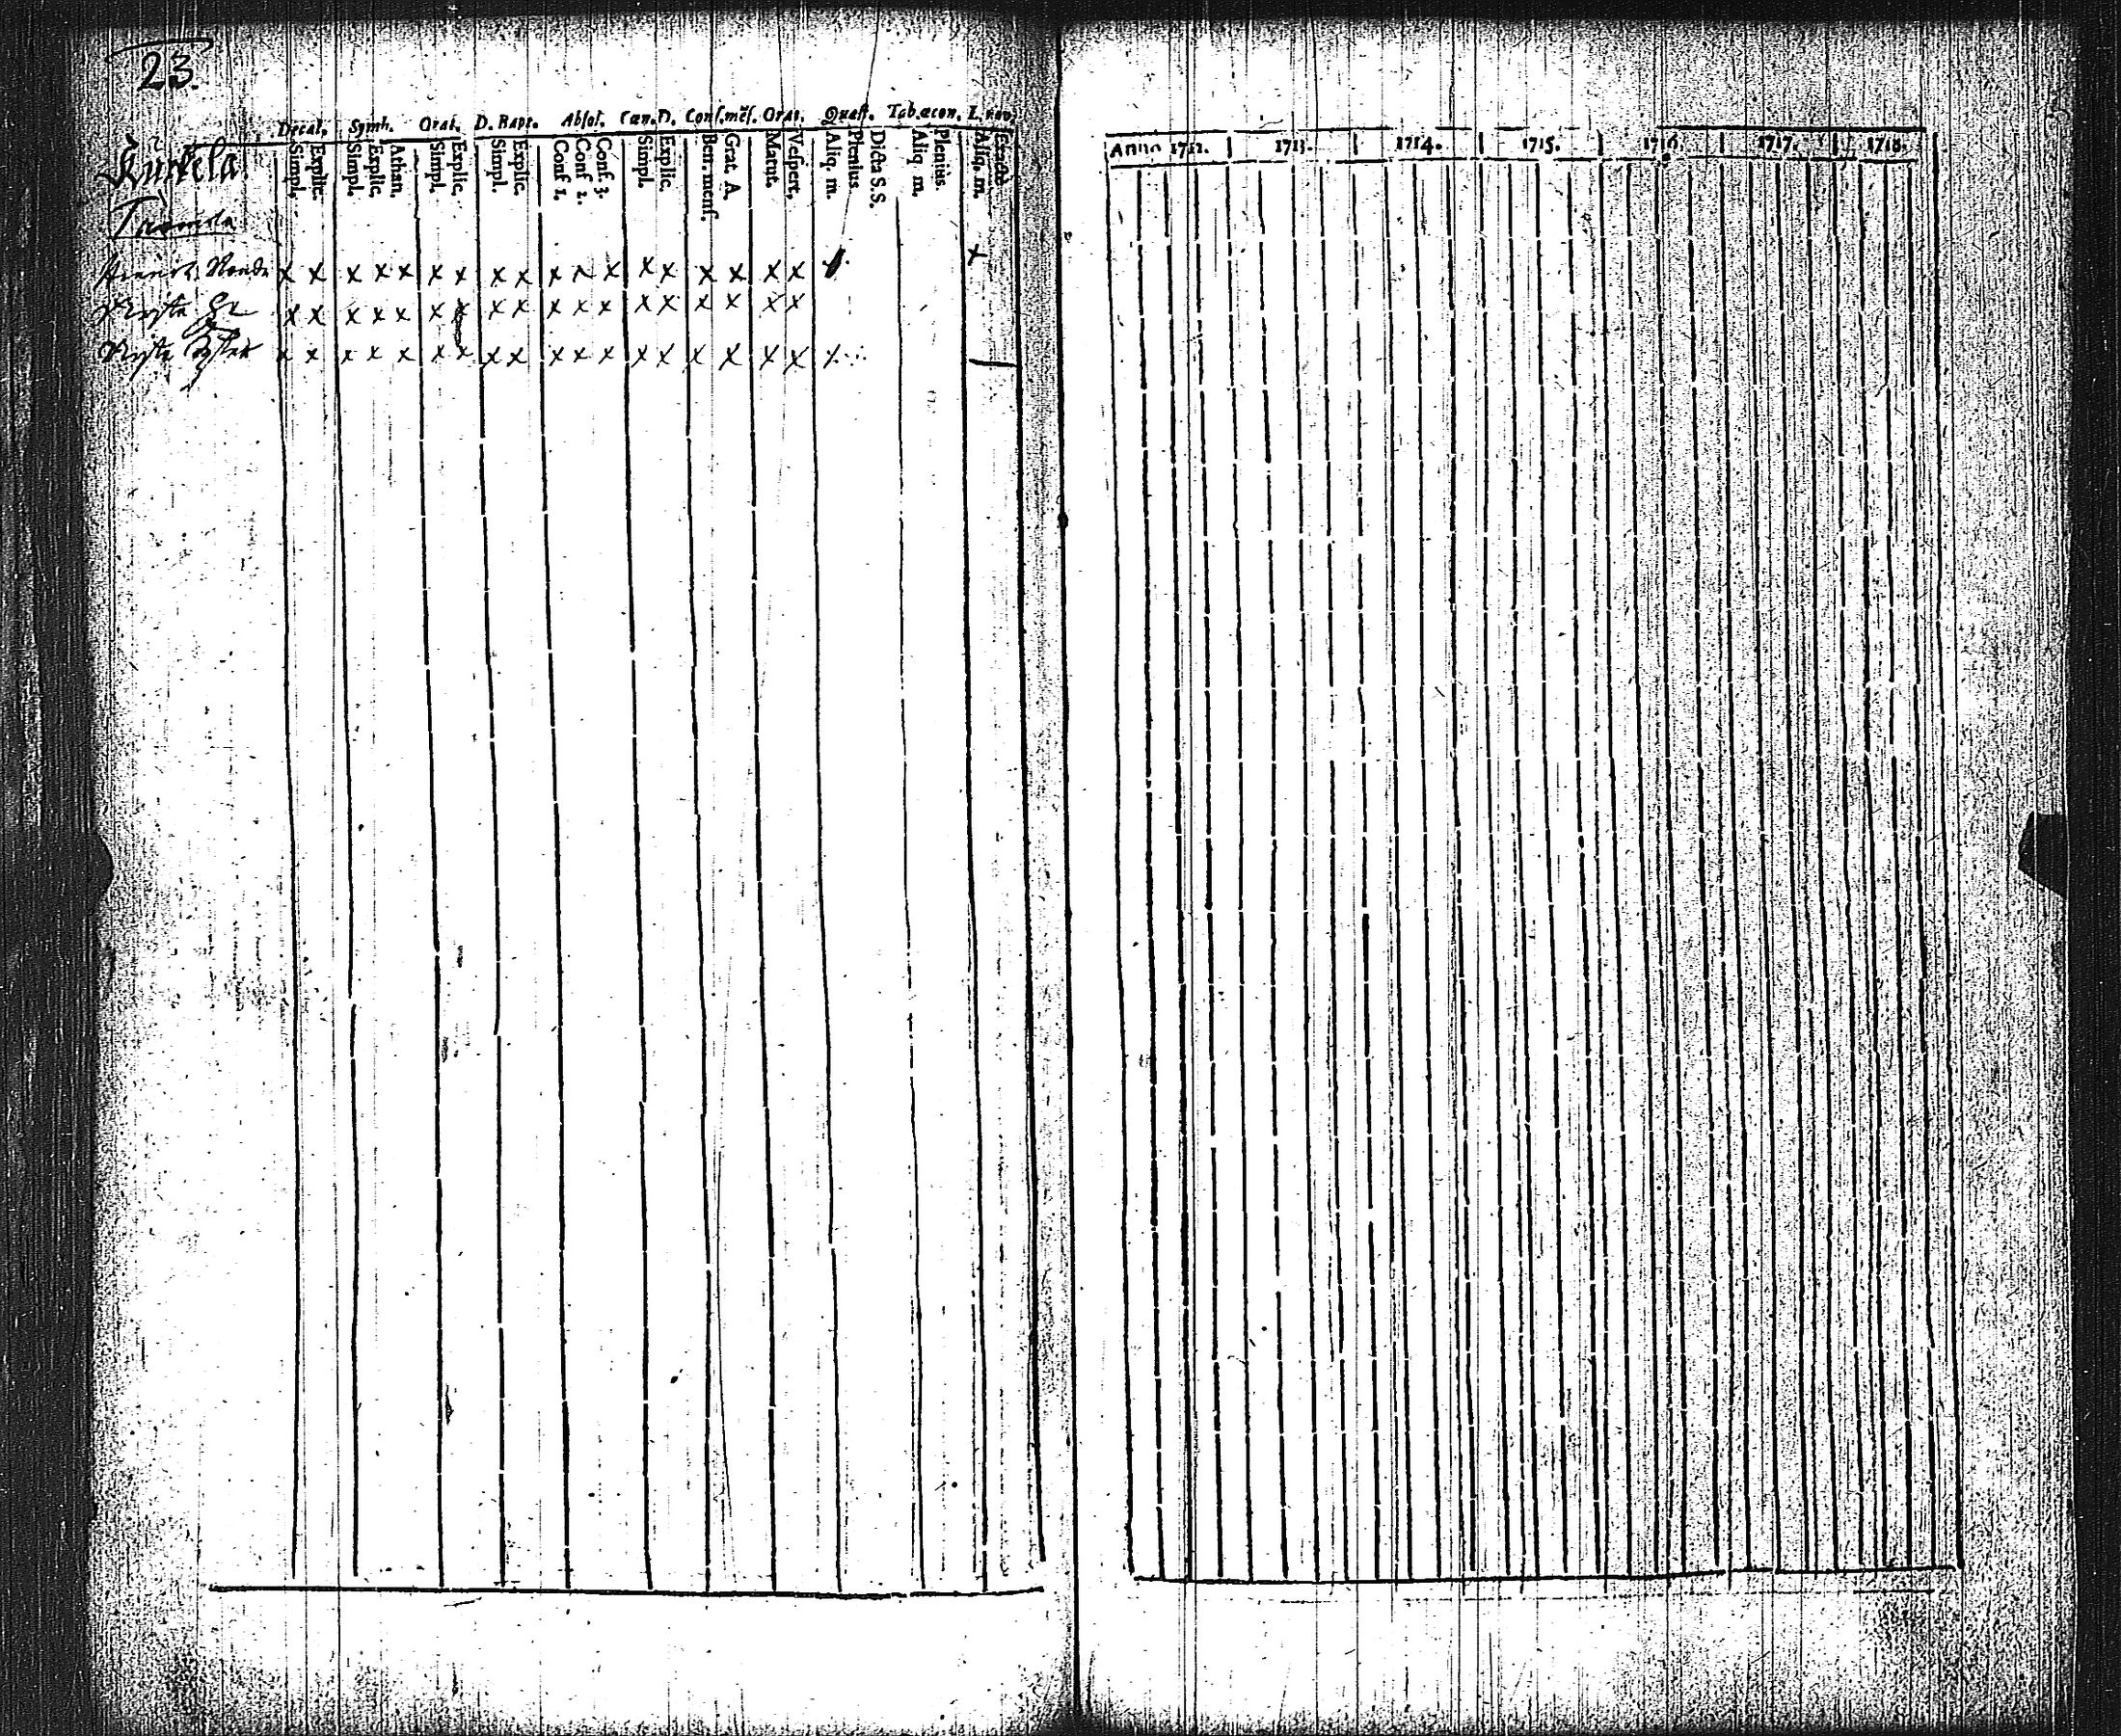 23.
Decal. Symb. Orat. D. Bapt. Absol. Cœn. D. Conf. mēs. Orat. Quæst. Tab. œcon. L. nov.
Kurkela
Simpl. Explic. Simpl. Explic. Athan. Simpl. Explic. Simpl. Explic. Conf. 1. Conf. 2. Conf. 3. Simpl. Explic. Ben. mens. Grat. A. Matut. Vespert. Aliq. m. Plenius. Dicta S.S. Aliq. m. Plenius. Aliq. m.
x x x x x x x x x x x x x x x x x x x
x x x x x x x x x x x x x x x x x x
x x x x x x x x x x x x x x x x x x x
Anno 1712. 1713. 1714. 1715. 1716. 1717. 1718.